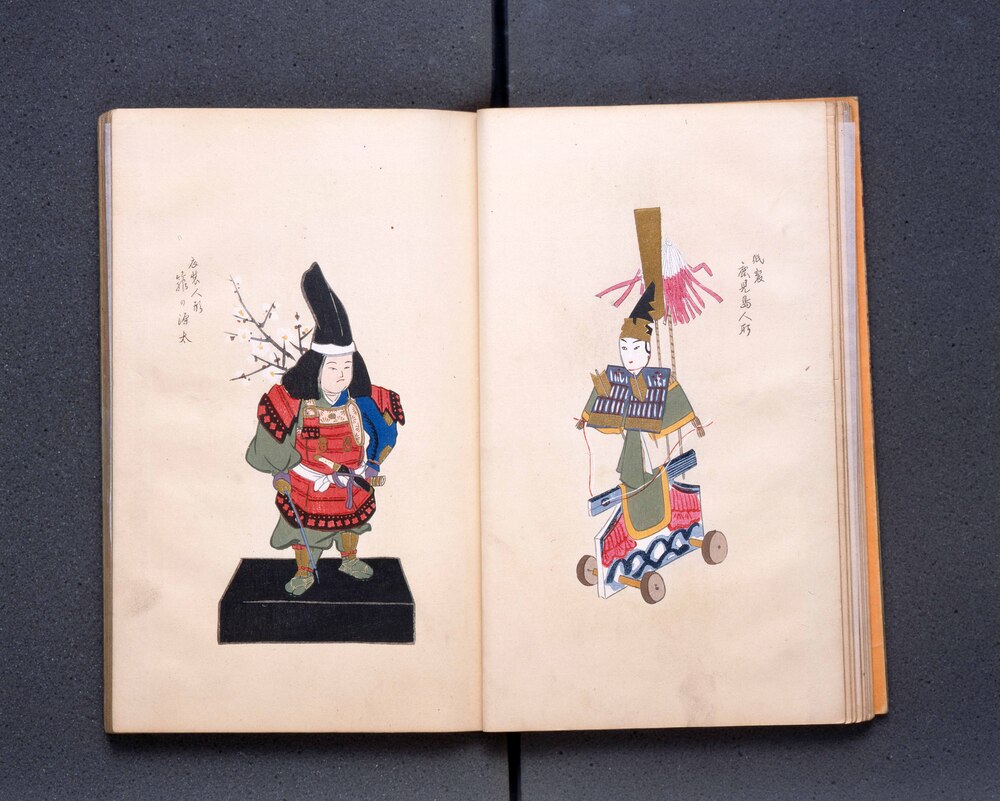 紙製
鹿児島人形
衣裳人形
箙の源太